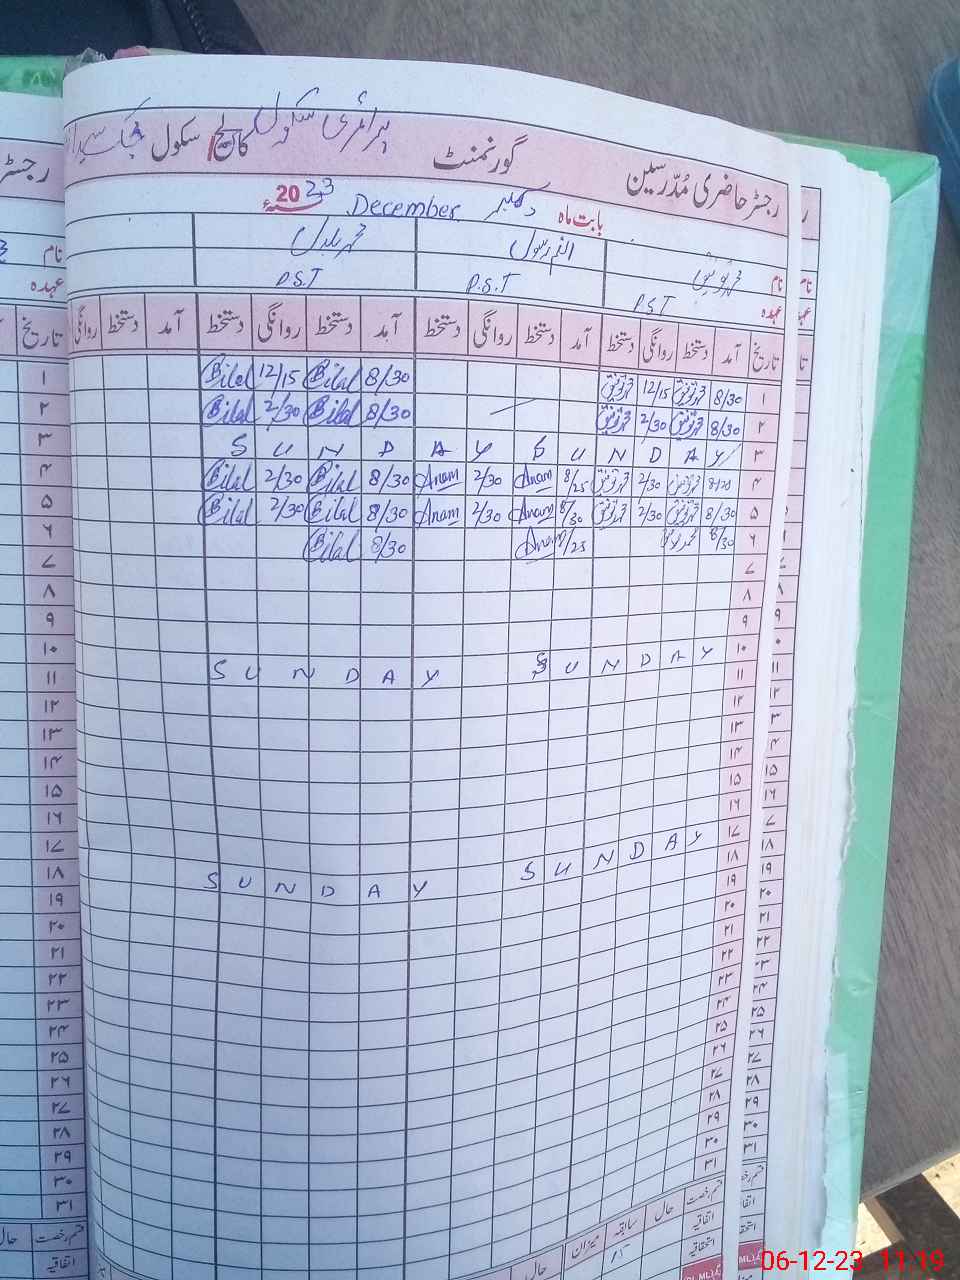 رجسٹر حاضری مُدّرسین گورنمنٹ کالج / سکول پرائمری سکول
بابت ماہ دسمبر December 2023ء
نام محمد توفیق انعم رسول محمد بلال
عہدہ P.S.T P.S.T P.S.T
تاریخ آمد دستخط روانگی دستخط آمد دستخط روانگی دستخط آمد دستخط روانگی دستخط آمد دستخط روانگی
۱ 8/30 محمد توفیق 12/15 محمد توفیق 8/30 Bilal 12/15 Bilal
۲ 8/30 محمد توفیق 2/30 محمد توفیق 8/30 Bilal 2/30 Bilal
۳ SUNDAY SUNDAY
۴ محمد توفیق 2/30 محمد توفیق 8/25 Anam 2/30 Anam 8/30 Bilal 2/30 Bilal
۵ 8/30 محمد توفیق 2/30 محمد توفیق 8/30 Anam 2/30 Anam 8/30 Bilal 2/30 Bilal
۶ 8/30 محمد توفیق Anam 8/30 Bilal
۷
۸
۹
۱۰ SUNDAY SUNDAY
۱۱
۱۲
۱۳
۱۴
۱۵
۱۶
۱۷ SUNDAY SUNDAY
۱۸
۱۹
۲۰
۲۱
۲۲
۲۳
۲۴
۲۵
۲۶
۲۷
۲۸
۲۹
۳۰
۳۱
قسم رخصت حال سابقہ میزان
اتفاقیہ
استحقاقیہ
06-12-23 11:19